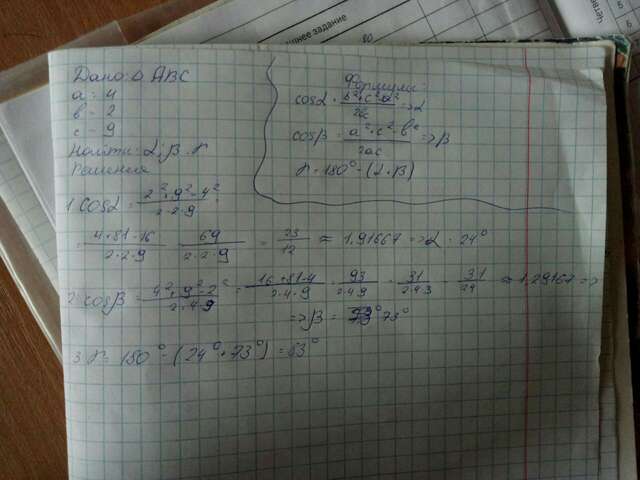 нее задание
80
Дано: Δ ABC
a = 4
b = 2
c = 9
Найти: α, β, γ
Решение
Формулы:
cosα = b²+c²-a² / 2bc => α
cosβ = a²+c²-b² / 2ac => β
γ = 180° - (α+β)
1 cosα = 2²+9²-4² / 2·2·9 =
= 4+81-16 / 2·2·9 = 69 / 2·2·9 = 23 / 12 ≈ 1,91667 => α = 24°
2 cosβ = 4²+9²-2² / 2·4·9 = 16+81-4 / 2·4·9 = 93 / 2·4·9 = 31 / 2·4·3 = 31 / 24 ≈ 1,29167 =>
=> β = 73°
3 γ = 180° - (24°+73°) = 83°